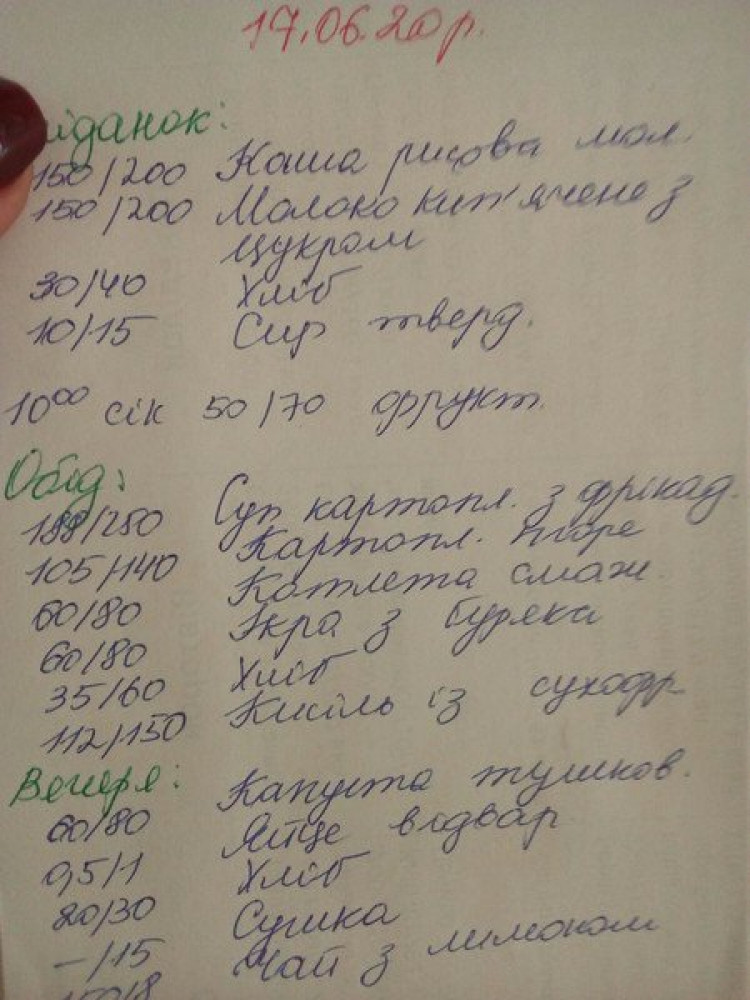 17.06.20р.
іданок:
150/200 Каша рисова мол.
150/200 Молоко кип'ячене з
цукром
30/40 Хліб
10/15 Сир тверд.
10⁰⁰ сік 50/70 фрукт.
Обід:
188/250 Суп картопл. з фрікад.
105/140 Картопл. пюре
60/80 Котлета смаж.
60/80 Ікра з буряка
35/60 Хліб
112/150 Кисіль із сухофр
Вечеря:
60/80 Капуста тушков.
0,5/1 Яйце відвар
20/30 Хліб
-/15 Сушка
Чай з лимоном